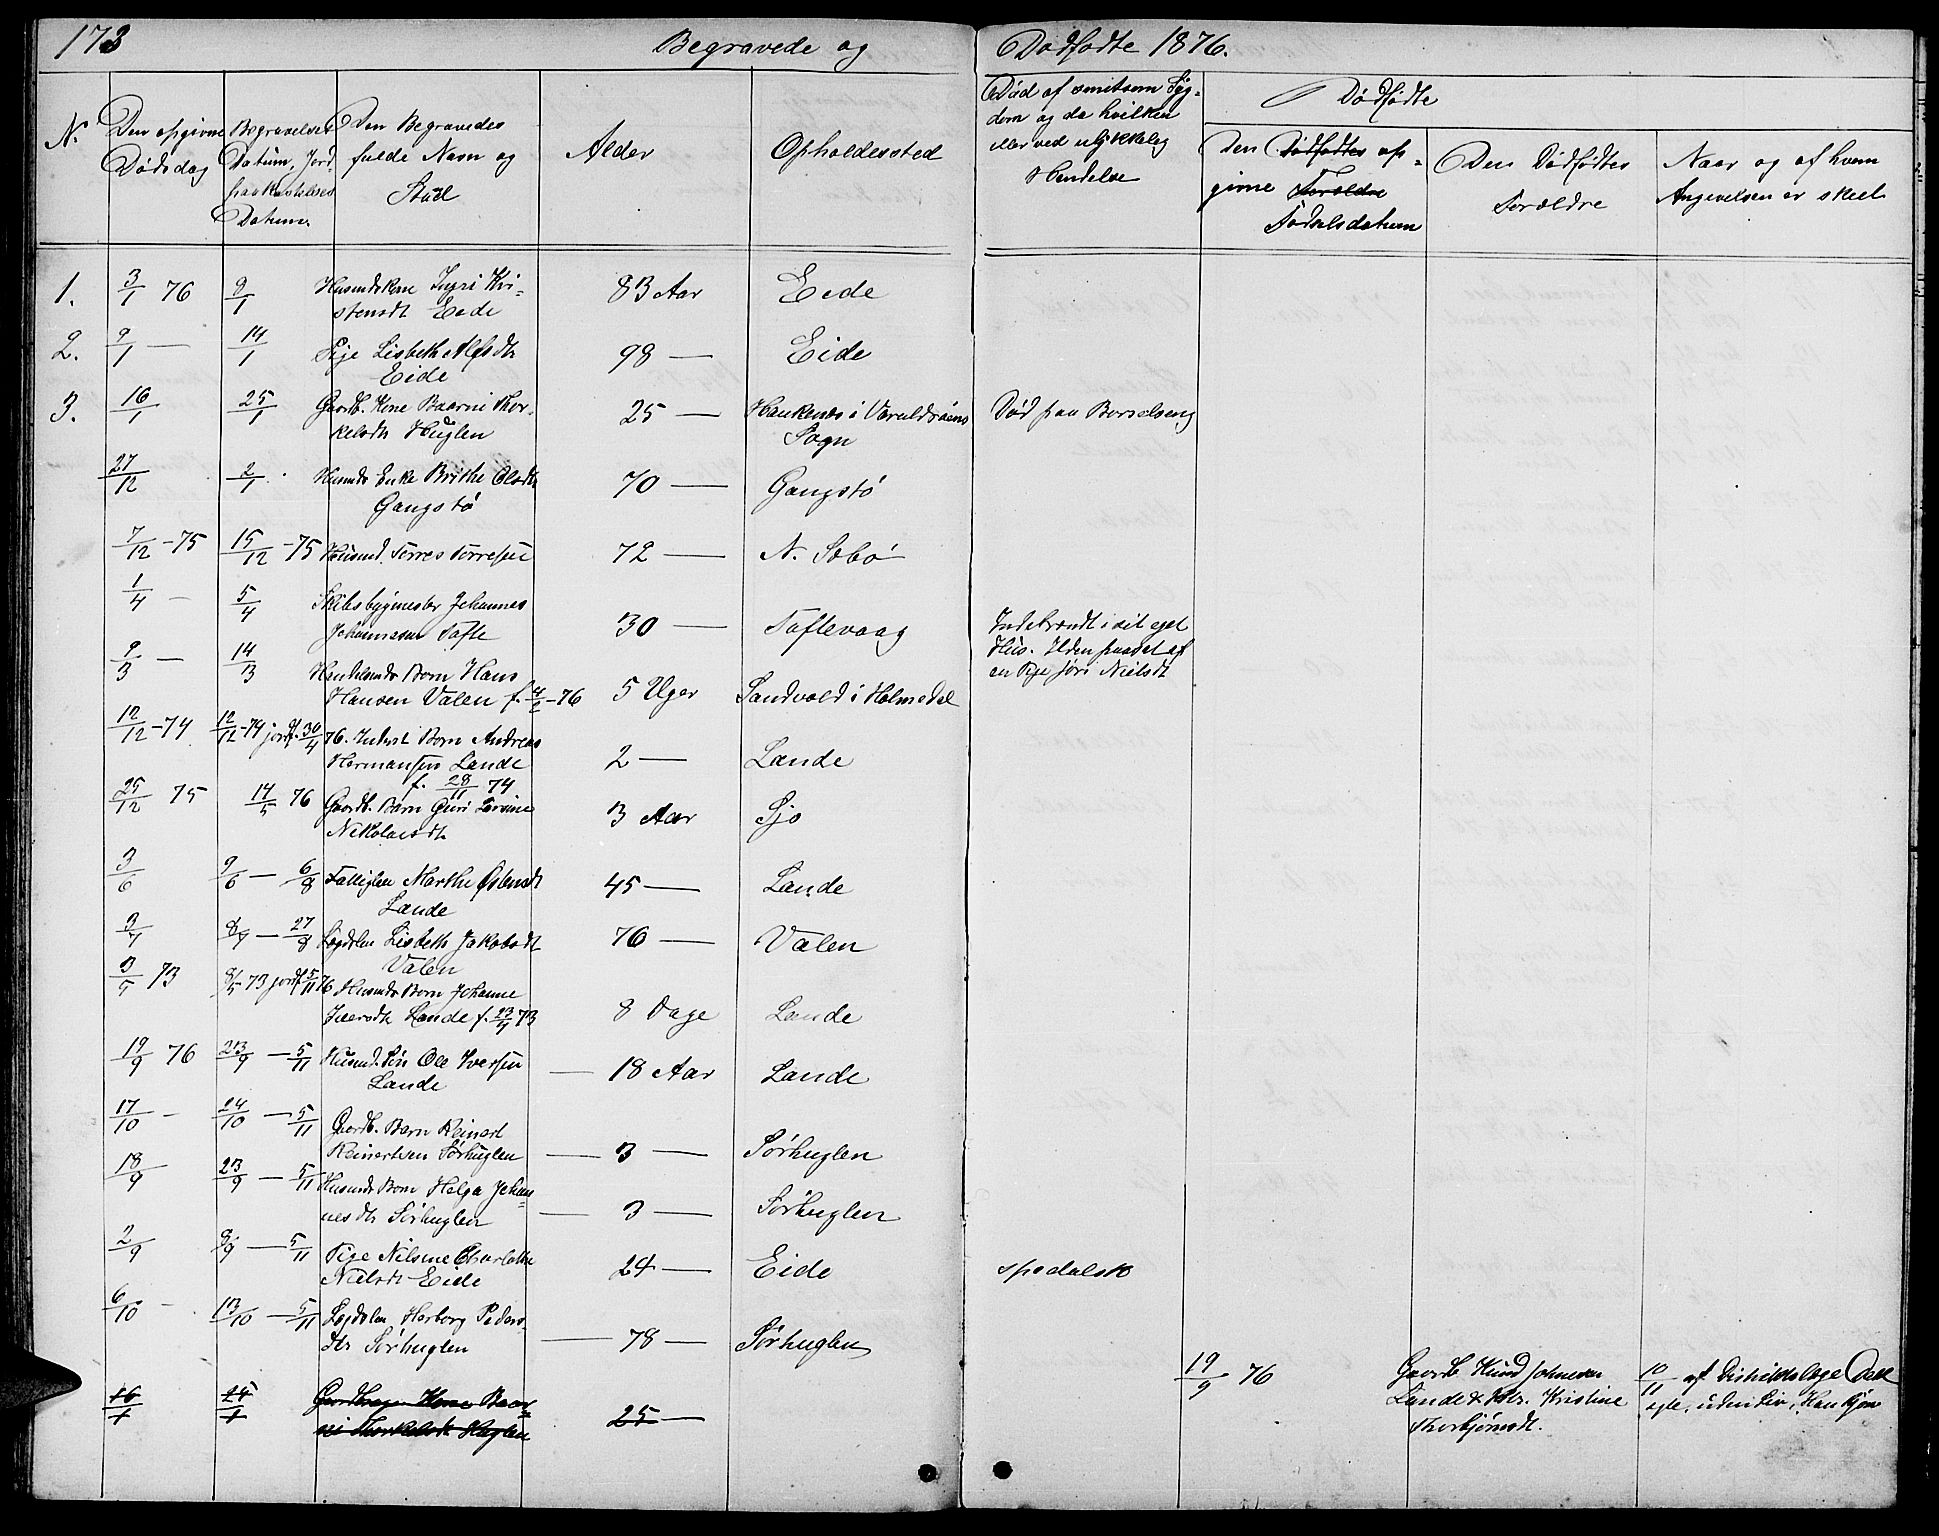 173 Begravede og Dødfødte 1876.
N. Den opgivne Dødsdag
Begravelses Datum, Jordpaakastelses Datum.
Den Begravedes fulde Navn og Stad
Alder
Opholdessted
Død af smitsom Sygdom og da hvilken eller ved ulykkelig Hændelse
Dødfødte
Den Dødfødtes opgivne Forældre Fødselsdatum
Den Dødfødtes Forældre
Naar og af hvem Angivelsen er skeet
1. 3/1 76 9/1 Husmdskone Ingri Kristensdt Eide 83 Aar Eide
2. 9/1 — 14/1 Pige Lisbeth Alfsdtr Eide 98 — Eide
3. 16/1 25/1 Gaardb. Kone Baarni Thorkelsdtr Huglen 25 — Haukenæs i Sogn Død paa Barselseng
27/12 2/1 Husmds Enke Brithe Olsdtr Gangstø 70 — Gangstø
7/12 - 75 15/12 - 75 Husmd. Torres Torresen 72 — N. Sæbø
1/4 — 5/4 Skibsbygmester Johannes Johannesen Tofte 30 — Toftevaag Indebrændt i sit eget Huus. Ilden paasat af en Pige Nielsdt
9/3 — 14/3 Barn Hans Hansen Valen f. 4/2 - 76 5 Uger Sandvold i Holmedal
12/12 - 74 12/12 - 74 jordf. 30/4 76. Inderst Barn Andreas Hermansen Lande f. 28/11 74 2 — Lande
25/12 75 14/5 76 Gaardb. Barn Guri Nikolaisdtr 3 Aar Sjo
3/6 9/6 — 6/8 Fattiglem Marthe Østensdt Lande 45 — Lande
3/7 8/7 — 27/8 Lægdslem Lisbeth Jakobsdt Valen 76 — Valen
3/5 73 8/5 73 jordf. 5/11 76 Husmds Barn Johanne Lande f. 23/4 73 8 Dage Lande
19/9 76 23/9 — 5/11 Husmd. Søn Ole Iversen Lande — 18 Aar Lande
17/10 — 24/10 — 5/11 Gaardb. Barn Reinert Reinertsen Sørhuglen — 3 — Sørhuglen
18/9 23/9 — 5/11 Husmds Barn Helga Johannesdtr Sørhuglen — 3 — Sørhuglen
2/9 8/9 — 5/11 Pige Nilsine Charlotte Nielsdt Eide 24 — Eide spedalsk
6/10 — 13/10 — 5/11 Lægdslem Herborg Pedersdtr Sørhuglen — 78 — Sørhuglen
19/9 76 Gaardb. Knud Johnesen Lande & Hstr. Kristine Thorbjørnsdt. 10/11 af Distriktslæge Dall ægte, uden Liv, Hankjøn
16/1 25/1 Kone Baarni Thorkelsdt Huglen 25 —